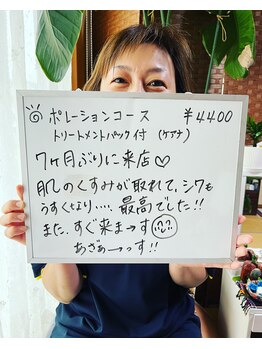 ポレーションコース ¥4400
トリートメントパック付 (ケアナ)
7ヶ月ぶりに来店♡
肌のくすみが取れて、シワも
うすくなり..... 最高でした!!
また、すぐ来ま→す
あざぁ→っす!!